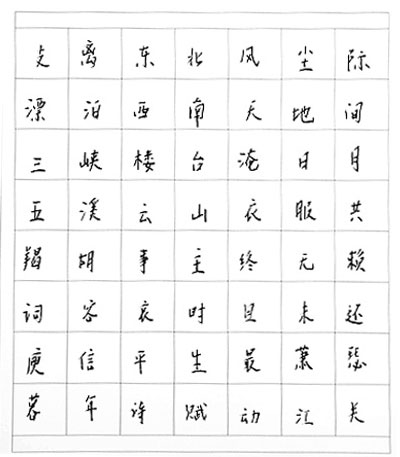 支离东北风尘际
漂泊西南天地间
三峡楼台淹日月
五溪云山衣服共
羯胡事主终无赖
词客哀时且未还
庾信平生最萧瑟
暮年诗赋动江关